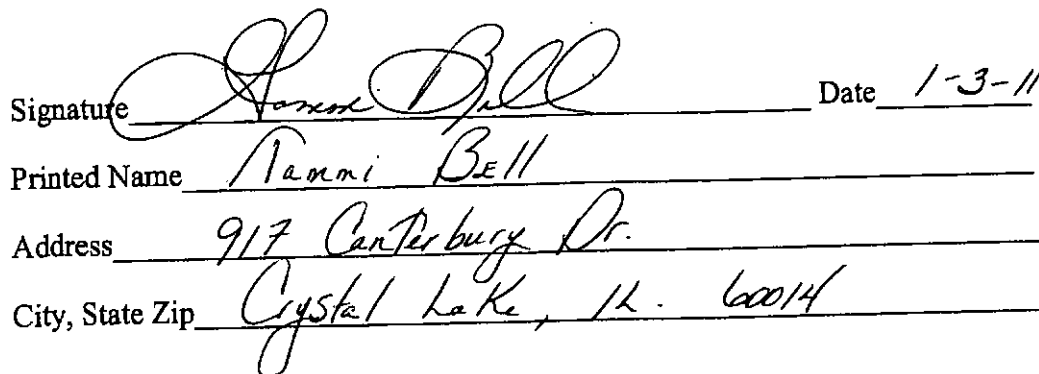 Signature Tammi Bell Date 1-3-11
Printed Name Tammi Bell
Address 917 Canterbury Dr.
City, State Zip Crystal Lake, IL. 60014